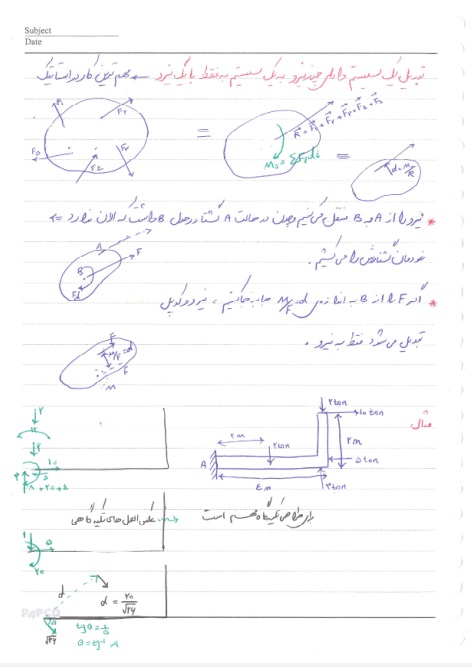 Subject
Date
تبدیل یک سیستم دارای چند نیرو به یک سیستم به فقط با یک نیرو ← مهم ترین کار در استاتیک
F₁
F₂
F₃
F₅
F₄
=
R = F₁ + F₂ + F₃ + F₄ + F₅
M₀ = ΣFᵢdᵢ
=
d = M₀/R
* نیرو را از A به B منتقل می کنیم و چون در حالت A گشتاور حول B داشت که الان ندارد =>
خودمان گشتاورش را می کشیم.
A
F
B
F
Fd
* اگر F را از B به اندازه ی M/F = d جا به جا کنیم، نیرو و کوپل
تبدیل می شود فقط به نیرو.
F
M/F = d
F
M
مثال
۲ton
۱۰ton
۲m
۲ton
۲m
A
۵ton
۴m
۳ton
برای طراحی تکیه گاه مهم است
عکس العمل های تکیه گاهی
۱
۵
۲۰
d
d = ۲۰/√۲۶
√۲۶
tgθ = ۱/۵
θ = tg⁻¹
PAPCO